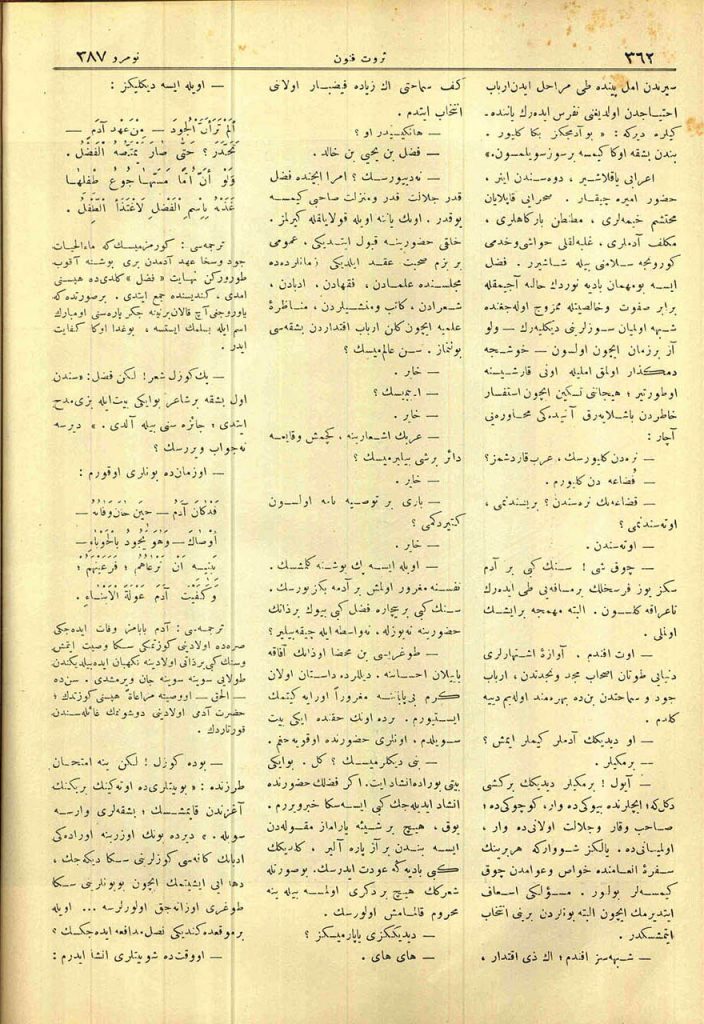 ٣٦٢
ثروت فنون
نومرو ٣٨٧
سیرندن امل پینده طی مراحل ایدن ارباب
احتیاجدن اولدیغنی تفرس ایده‌رك یاننده‌ـ
كیلره دیركه : « بوآدمجكز بكا كلیور .
بندن بشقه اوكا كیمسه برسوز سویلمسون.»
اعرابی یاقلاشیر ، دوه‌سندن اینر ،
حضور امیره چیقار . صحرایی قاپلایان
محتشم خیمه‌لری ، مطنطن باركاهلری ،
مكلف آدملری ، غلبه‌لقلی حواشی وخدمی
كورونجه سلامنی بیله شاشیرر . فضل
ایسه بومهمان بادیه نوردك حالنه آجیمقله
برابر صفوت وخالصیتله ممزوج اوله‌جغنده
شبهه اولمیان سوزلرینی دیكلیه‌رك — ولو
آز برزمان ایچون اولسون — خوشجه
دمكذار اولمق املیله اونی قارشیسنه
اوطورتیر ؛ هیجاننی تسكین ایچون استفسار
خاطردن باشلایه‌رق آتیده‌كی محاوره‌یی
آچار :
— نره‌دن كلیورسك ، عرب قارده‌شمز؟
— قُضاعه دن كلیورم .
— قضاعه‌نك نره‌سندن ؟ بریسندنمی ،
اوته‌سندنمی ؟
— اوته‌سندن .
— چوق شی ! سنك كبی بر آدم
سكز یوز فرسخلك برمسافه‌یی طی ایده‌رك
تاعراقه كلسون . البته مهمجه برایشك
اولملی .
— اوت افندم . آوازۀ اشتهارلری
دنیایی طوتان اصحاب مجد ونجدتدن ، ارباب
جود و سماحتدن بن‌ده بهره‌مند اوله‌یم دییه
كلدم .
— او دیدیكك آدملر كیملر ایمش ؟
— برمكیلر .
— آیول ! برمكیلر دیدیكك بركشی
دكل‌كه؛ ایچلرنده بیوكی‌ده وار ، كوچوكی‌ده؛
صاحب وقار وجلالت اولانی‌ده وار ،
اولمیانی‌ده . یالكز شووار كه هربرینك
سفرۀ انعامنده خواص وعوامدن چوق
كیمسه‌لر بولنور . مسؤلكی اسعاف
ایتدیرمك ایچون البته بونلردن برینی انتخاب
ایتمشسكدر .
— شبهه‌سز افندم ؛ اك ذی اقتدار ،
كف سماحتی اك زیاده فیضبار اولانی
انتخاب ایتدم .
— هانكیسیدر او ؟
— فضل بن یحیی بن خالد .
— نه‌دییورسك ؟ امرا ایچنده فضل
قدر جلالت قدر ومنزلت صاحبی كیمسه
یوقدر . اونك یاننه اویله قولایلقله كیرلمز .
خلقی حضورینه قبول ایتدیكی ، عمومی
بر بزم صحبت عقد ایلدیكی زمانلرده‌ده
مجلسنده علمادن ، فقهادن . ادبادن ،
شعرادن ، كاتب ومنشیلردن ، مناظرۀ
علمیه ایچون كلن ارباب اقتداردن بشقه‌سی
بولنماز . سن عالممیسك ؟
— خایر .
— ادیبمیسك ؟
— خایر .
— عربك اشعارینه ، كچمش وقایعنه
دائر برشی بیلیرمیسك ؟
— خایر .
— باری بر توصیه نامه اولسون
كتیردكمی ؟
— خایر .
— اویله ایسه پك بوشنه كلمشسك .
نفسنه مغرور اولمش بر آدمه بكزیورسك .
سنك كبی بر بیچاره فضل كبی بیوك برذاتك
حضورینه نه‌یوزله . نه‌واسطه ایله چیقه‌بیلیر؟
— طوغریسی بن محضا اوذاتك آفاقه
یاییلان احساننه . دیللرده داستان اولان
كرم بی‌پایاننه مغروراً اورایه كیتمك
ایستیورم . برده اونك حقنده ایكی بیت
سویلدم . اونلری حضورنده اوقویه‌جغم .
— بنی دیكلرمیسك ؟ كل . بوایكی
بیتی بوراده انشاد ایت. اكر فضلك حضورنده
انشاد ایدیله‌جك كبی ایسه سكا خبرویررم .
یوق ، هیچ بر شیئه یاراماز مقوله‌دن
ایسه بندن بر آز پاره آلیر . كلدیكك
كبی بادیه‌یه عودت ایدرسك. بوصورتله
شعركك هیچ بردكری اولمسه بیله ینه
محروم قالمامش اولورسك .
— دیدیككزی یاپارمیسكز ؟
— های های .
— اویله ایسه دیكلیكز :
أَلَمْ تَرَ أَنَّ الْجُودَ — مِنْ عَهْدِ آدَمَ —
تَحَدَّرَ ؟ حَتَّى صَارَ يَمْتَصُّهُ الْفَضْلُ .
وَلَوْ أَنَّ أُمًّا مَسَّهَا جُوعُ طِفْلِهَا
غَذَتْهُ بِاِسْمِ الْفَضْلِ لَاغْتَذَأَ الطِّفْلُ .
ترجمه‌سی : كورمزمیسك كه ماءالحیات
جود وسخا عهد آدمدن بری بوشنه آقوب
طوروركن نهایت « فضل » كلدی‌ده هپسنی
امدی . كندیسنده جمع ایتدی . برصورتده‌كه
یاوروجغی آچ قالان برنینه جكر پاره‌سنی اومبارك
اسم ایله بسلمك ایستسه ، بوغدا اوكا كفایت
ایدر .
— پك كوزل شعر! لكن فضل: «سندن
اول بشقه برشاعر بوایكی بیت ایله بزی مدح
ایتدی ؛ جائزه سنی بیله آلدی . » دیرسه
نه‌جواب ویررسك ؟
— اوزمان‌ده بونلری اوقورم :
قَدْ كَانَ آدَمُ — حِينَ حَانَ وَفَاتُهُ —
أَوْصَاكَ — وَهْوَ يَجُودُ بِالْحَوْبَاءِ —
بِبَنِيهِ أَنْ تَرْعَاهُمُ ؛ فَرَعَيْتَهُمْ ؛
وَكَفَيْتَ آدَمَ عَوْلَةَ الْأَبْنَاءِ .
ترجمه‌سی : آدم بابامز وفات ایده‌جكی
صره‌ده اولادینی كوزتمكی سكا وصیت ایتمش
وسنك كبی برذاتی اولادینه نكهبان ایده‌بیلدیكندن
طولایی سوینه سوینه جان ویرمشدی . سن‌ده
— الحق — اووصیته مراعاةً هپسنی كوزتدك ؛
حضرت آدمی اولادینی دوشونمك غائله‌سندن
قورتاردك .
— بوده كوزل ! لكن ینه امتحان
طرزنده : « بوبیتلری‌ده اوته‌كینك بریكینك
آغزندن قاپمشسك ؛ بشقه‌لری وارسه
سویله . » دیرده بونك اوزرینه اوراده‌كی
ادبانك كافه‌سی كوزلرینی سكا دیكه‌جك ،
دها ایی ایشیتمك ایچون بویونلرینی سكا
طوغری اوزاته‌جق اولورلرسه ... اویله
برموقعده كندیكی نصل مدافعه ایده‌جكسك ؟
— اووقت‌ده شوبیتلری انشا ایدرم :